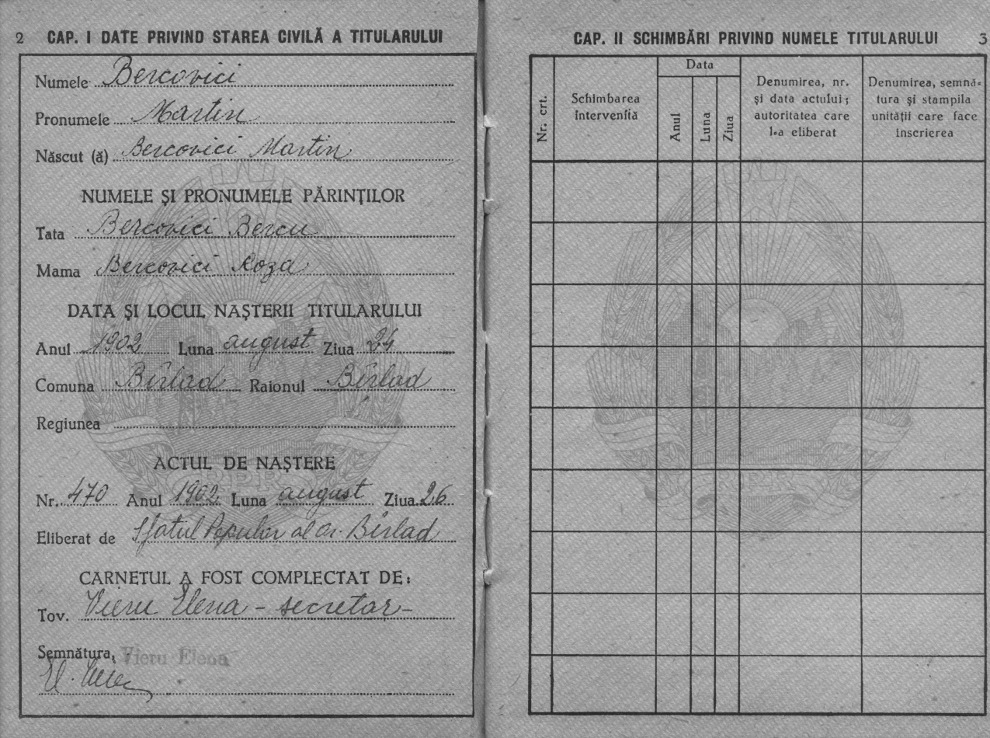 2 CAP. I DATE PRIVIND STAREA CIVILĂ A TITULARULUI
Numele Bercovici
Pronumele Martin
Născut (ă) Bercovici Martin
NUMELE ȘI PRONUMELE PĂRINȚILOR
Tata Bercovici Bercu
Mama Bercovici Roza
DATA ȘI LOCUL NAȘTERII TITULARULUI
Anul 1902 Luna august Ziua 24
Comuna Bîrlad Raionul Bîrlad
Regiunea
ACTUL DE NAȘTERE
Nr. 470 Anul 1902 Luna august Ziua 26
Eliberat de Sfatul Popular al or. Bîrlad
CARNETUL A FOST COMPLECTAT DE:
Tov. Vieru Elena - secretar -
Semnătura, Vieru Elena
CAP. II SCHIMBĂRI PRIVIND NUMELE TITULARULUI 3
Nr. crt.
Schimbarea
intervenită
Data
Anul
Luna
Ziua
Denumirea, nr.
și data actului;
autoritatea care
l-a eliberat
Denumirea, semnă-
tura și stampila
unității care face
inscrierea
RPR